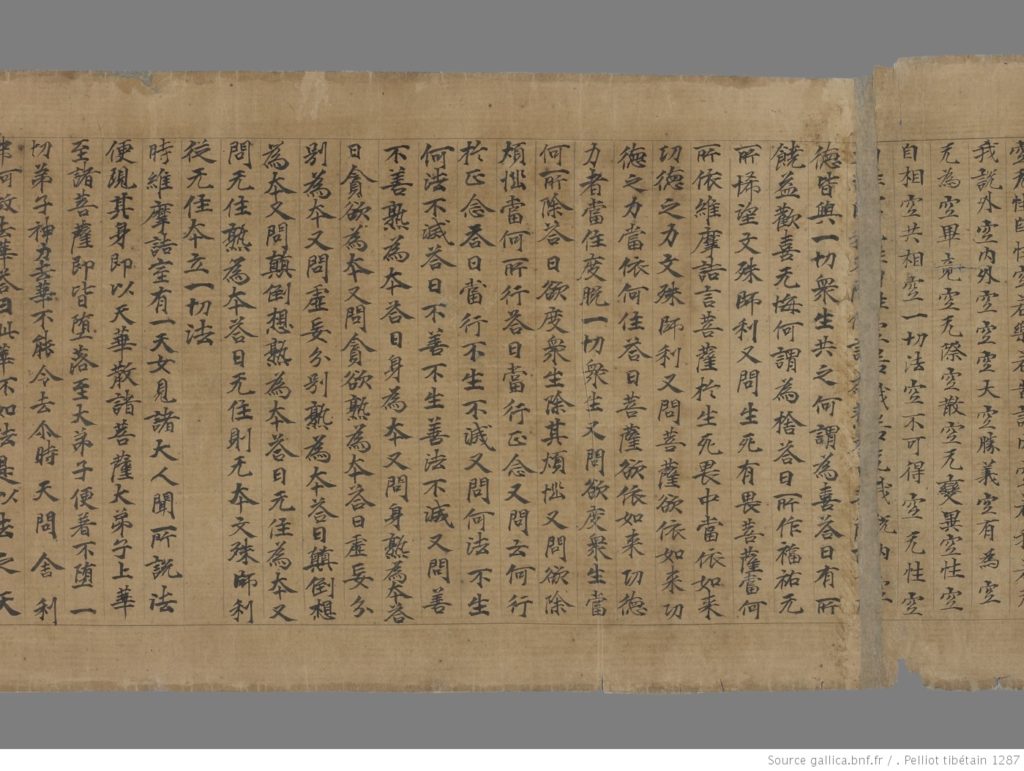 我說外空內外空空空大空勝義空有為空
无為空畢竟空无際空散空无變異空性空
自相空共相空一切法空不可得空无性空
德皆與一切衆生共之何謂為喜荅曰有所
饒益歡喜无悔何謂為捨荅曰所作福祐无
所悕望文殊師利又問生死有畏菩薩當何
所依維摩詰言菩薩於生死畏中當依如来
功德之力文殊師利又問菩薩欲依如来功
德之力當依何住荅曰菩薩欲依如来功德
力者當住度脫一切衆生又問欲度衆生當
何所除荅曰欲度衆生除其煩惱又問欲除
煩惱當何所行荅曰當行正念又問云何行
於正念荅曰當行不生不滅又問何法不生
何法不滅荅曰不善不生善法不滅又問善
不善熟為本荅曰身為本又問身熟為本荅
曰貪欲為本又問貪欲熟為本荅曰虛妄分
別為本又問虛妄分別熟為本荅曰顛倒想
為本又問顛倒想熟為本荅曰无住為本又
問无住熟為本荅曰无住則无本文殊師利
從无住本立一切法
時維摩詰室有一天女見諸大人聞所說法
便現其身即以天華散諸菩薩大弟子上華
至諸菩薩即皆墮落至大弟子便著不墮一
切弟子神力去華不能令去尒時天問舍利
弗何故去華荅曰此華不如法是以去之天
Source gallica.bnf.fr / , Pelliot tibétain 1287